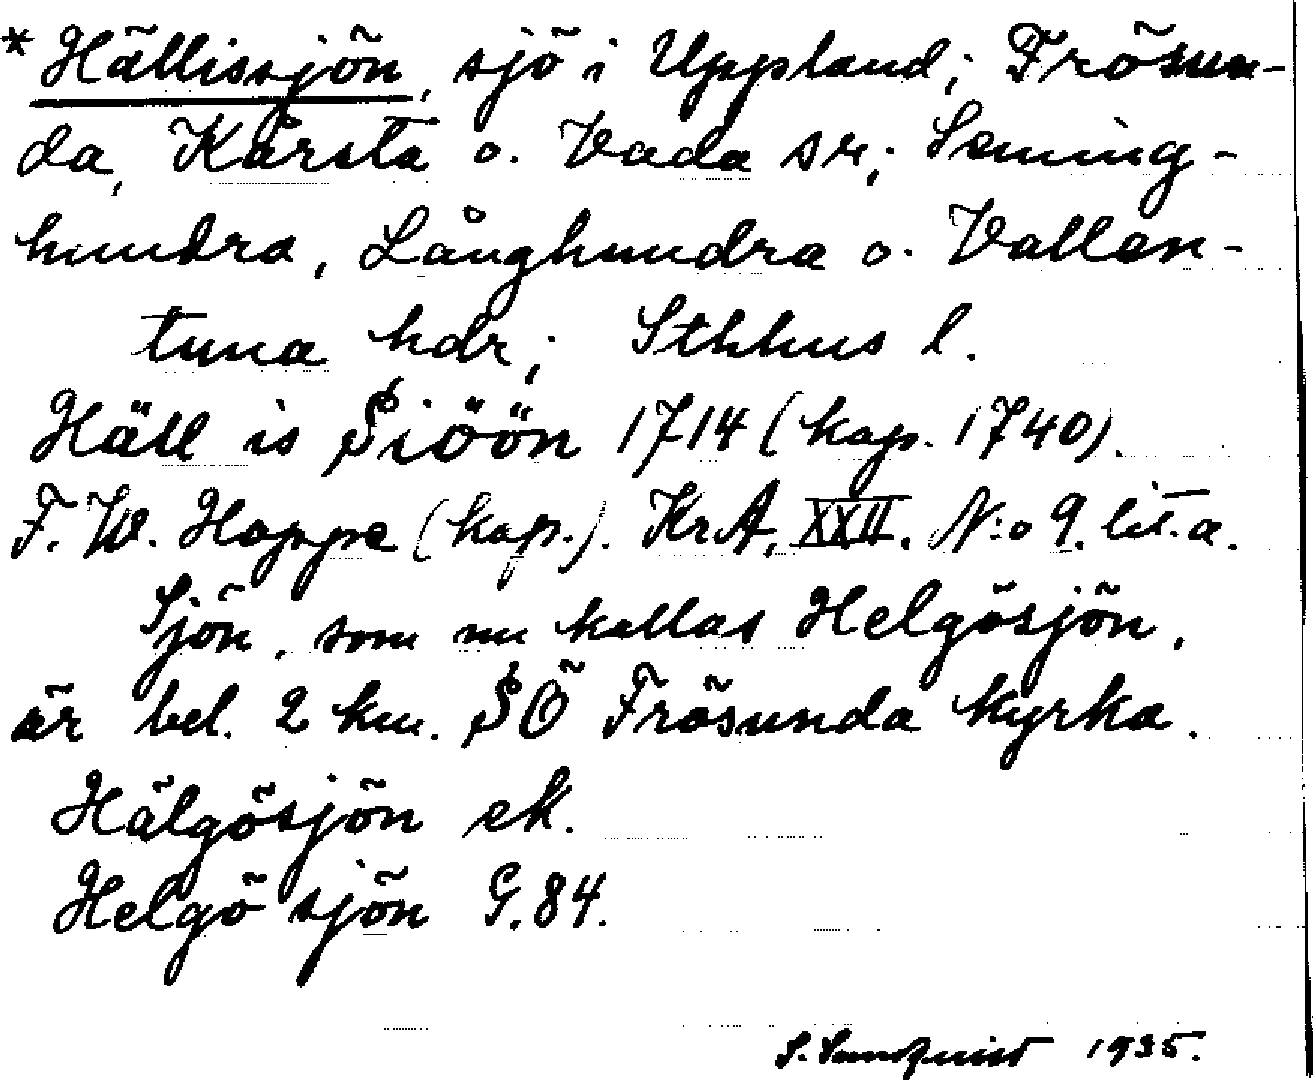 * Hällissjön, sjö i Uppland; Frösun-
da, Kårsta o. Vada sr; Seming-
hundra, Långhundra o. Vallen-
tuna hdr; Sthhus l.
Häll is Siöön 1714 (kap. 1740).
F. W. Hoppe (kap.). KrA, XXII. N:o 9. lit. a.
Sjön, som nu kallas Helgösjön,
är bel. 2 km. SÖ Frösunda kyrka.
Hälgösjön ek.
Helgö sjön G. 84.
S. Sundquist 1935.